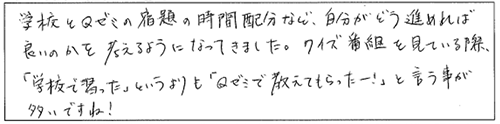 学校とQゼミの宿題の時間配分など、自分がどう進めれば
良いのかを考えるようになってきました。クイズ番組を見ている際、
「学校で習った」というよりも「Qゼミで教えてもらったー!」と言う事が
多いですね!